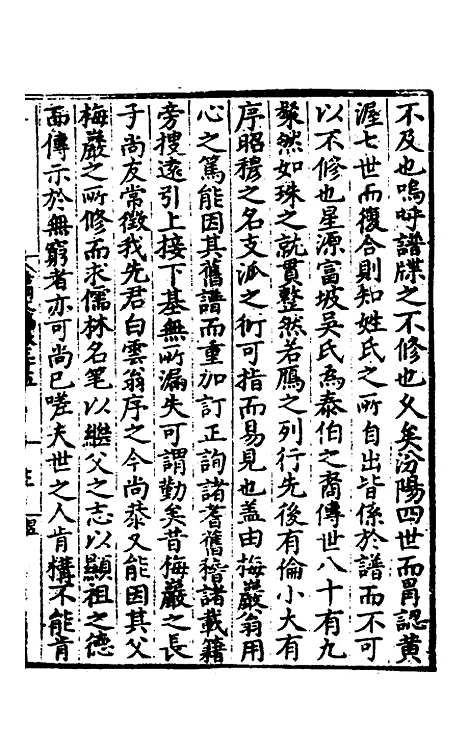 不及也嗚呼譜牒之不修也久矣汾陽四世而冐認黄
渥七世而復合則知姓氏之所自出皆係於譜而不可
以不修也星源富坡吳氏為泰伯之裔傳世八十有九
粲然如珠之就貫整然若鴈之列行先後有倫小大有
序昭穆之名支派之衍可指而易見也盖由梅巖翁用
心之篤能因其舊譜而重加訂正詢諸耆舊稽諸載籍
旁搜遠引上接下基無所漏失可謂勤矣昔梅巖之長
子尚友常徴我先君白雲翁序之今尚黍又能因其父
梅巖之所修而求儒林名筆以繼父之志以顯祖之德
而傳示於無窮者亦可尚已嗟夫世之人肯構不能肯